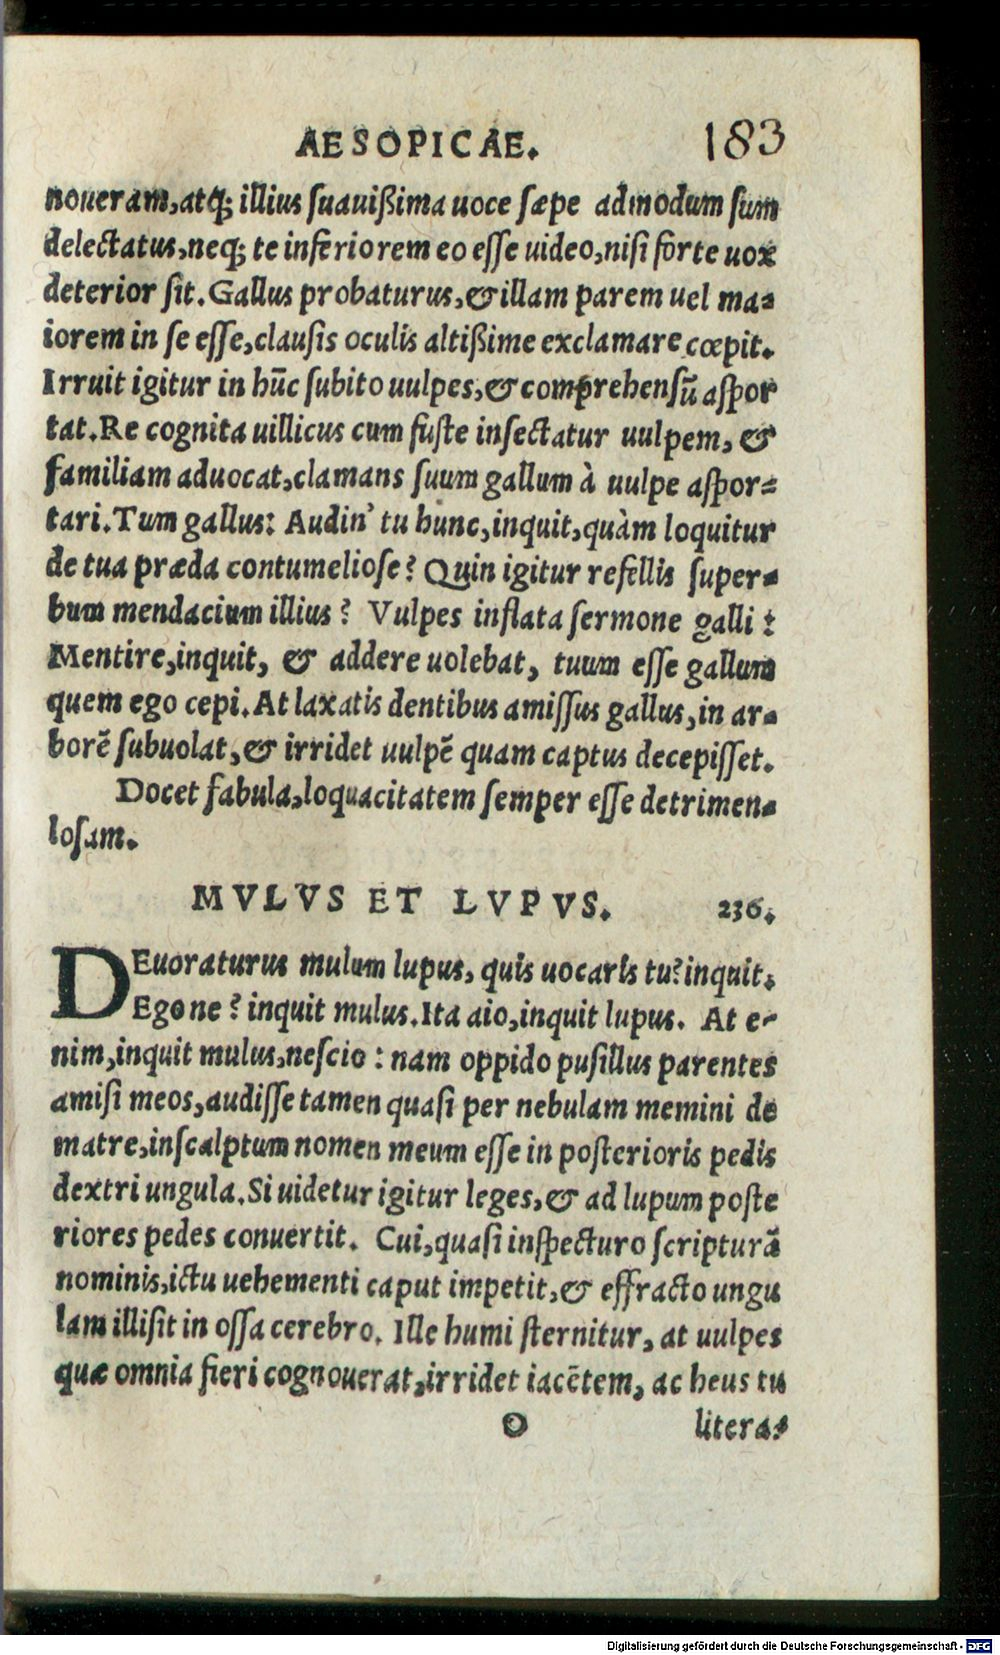 AESOPICAE. 183
noueram, atq; illius suauißima uoce sæpe admodum sum
delectatus, neq; te inferiorem eo esse uideo, nisi forte uox
deterior sit. Gallus probaturus, & illam parem uel ma-
iorem in se esse, clausis oculis altißime exclamare cœpit.
Irruit igitur in hūc subito uulpes, & comprehensū aspor
tat. Re cognita uillicus cum fuste insectatur uulpem, &
familiam aduocat, clamans suum gallum à uulpe aspor-
tari. Tum gallus: Audin' tu hunc, inquit, quàm loquitur
de tua præda contumeliose? Quin igitur refellis super-
bum mendacium illius? Vulpes inflata sermone galli:
Mentire, inquit, & addere uolebat, tuum esse gallum
quem ego cepi. At laxatis dentibus amissus gallus, in ar-
borē subuolat, & irridet uulpē quam captus decepisset.
Docet fabula, loquacitatem semper esse detrimen-
losam.
MVLVS ET LVPVS. 236.
DEuoraturus mulum lupus, quis uocaris tu? inquit.
Egone? inquit mulus. Ita aio, inquit lupus. At e-
nim, inquit mulus, nescio: nam oppido pusillus parentes
amisi meos, audisse tamen quasi per nebulam memini de
matre, inscalptum nomen meum esse in posterioris pedis
dextri ungula. Si uidetur igitur leges, & ad lupum poste
riores pedes conuertit. Cui, quasi inspecturo scripturā
nominis, ictu uehementi caput impetit, & effracto ungu
lam illisit in ossa cerebro. Ille humi sternitur, at uulpes
quæ omnia fieri cognouerat, irridet iacētem, ac heus tu
O litera-
Digitalisierung gefördert durch die Deutsche Forschungsgemeinschaft - DFG